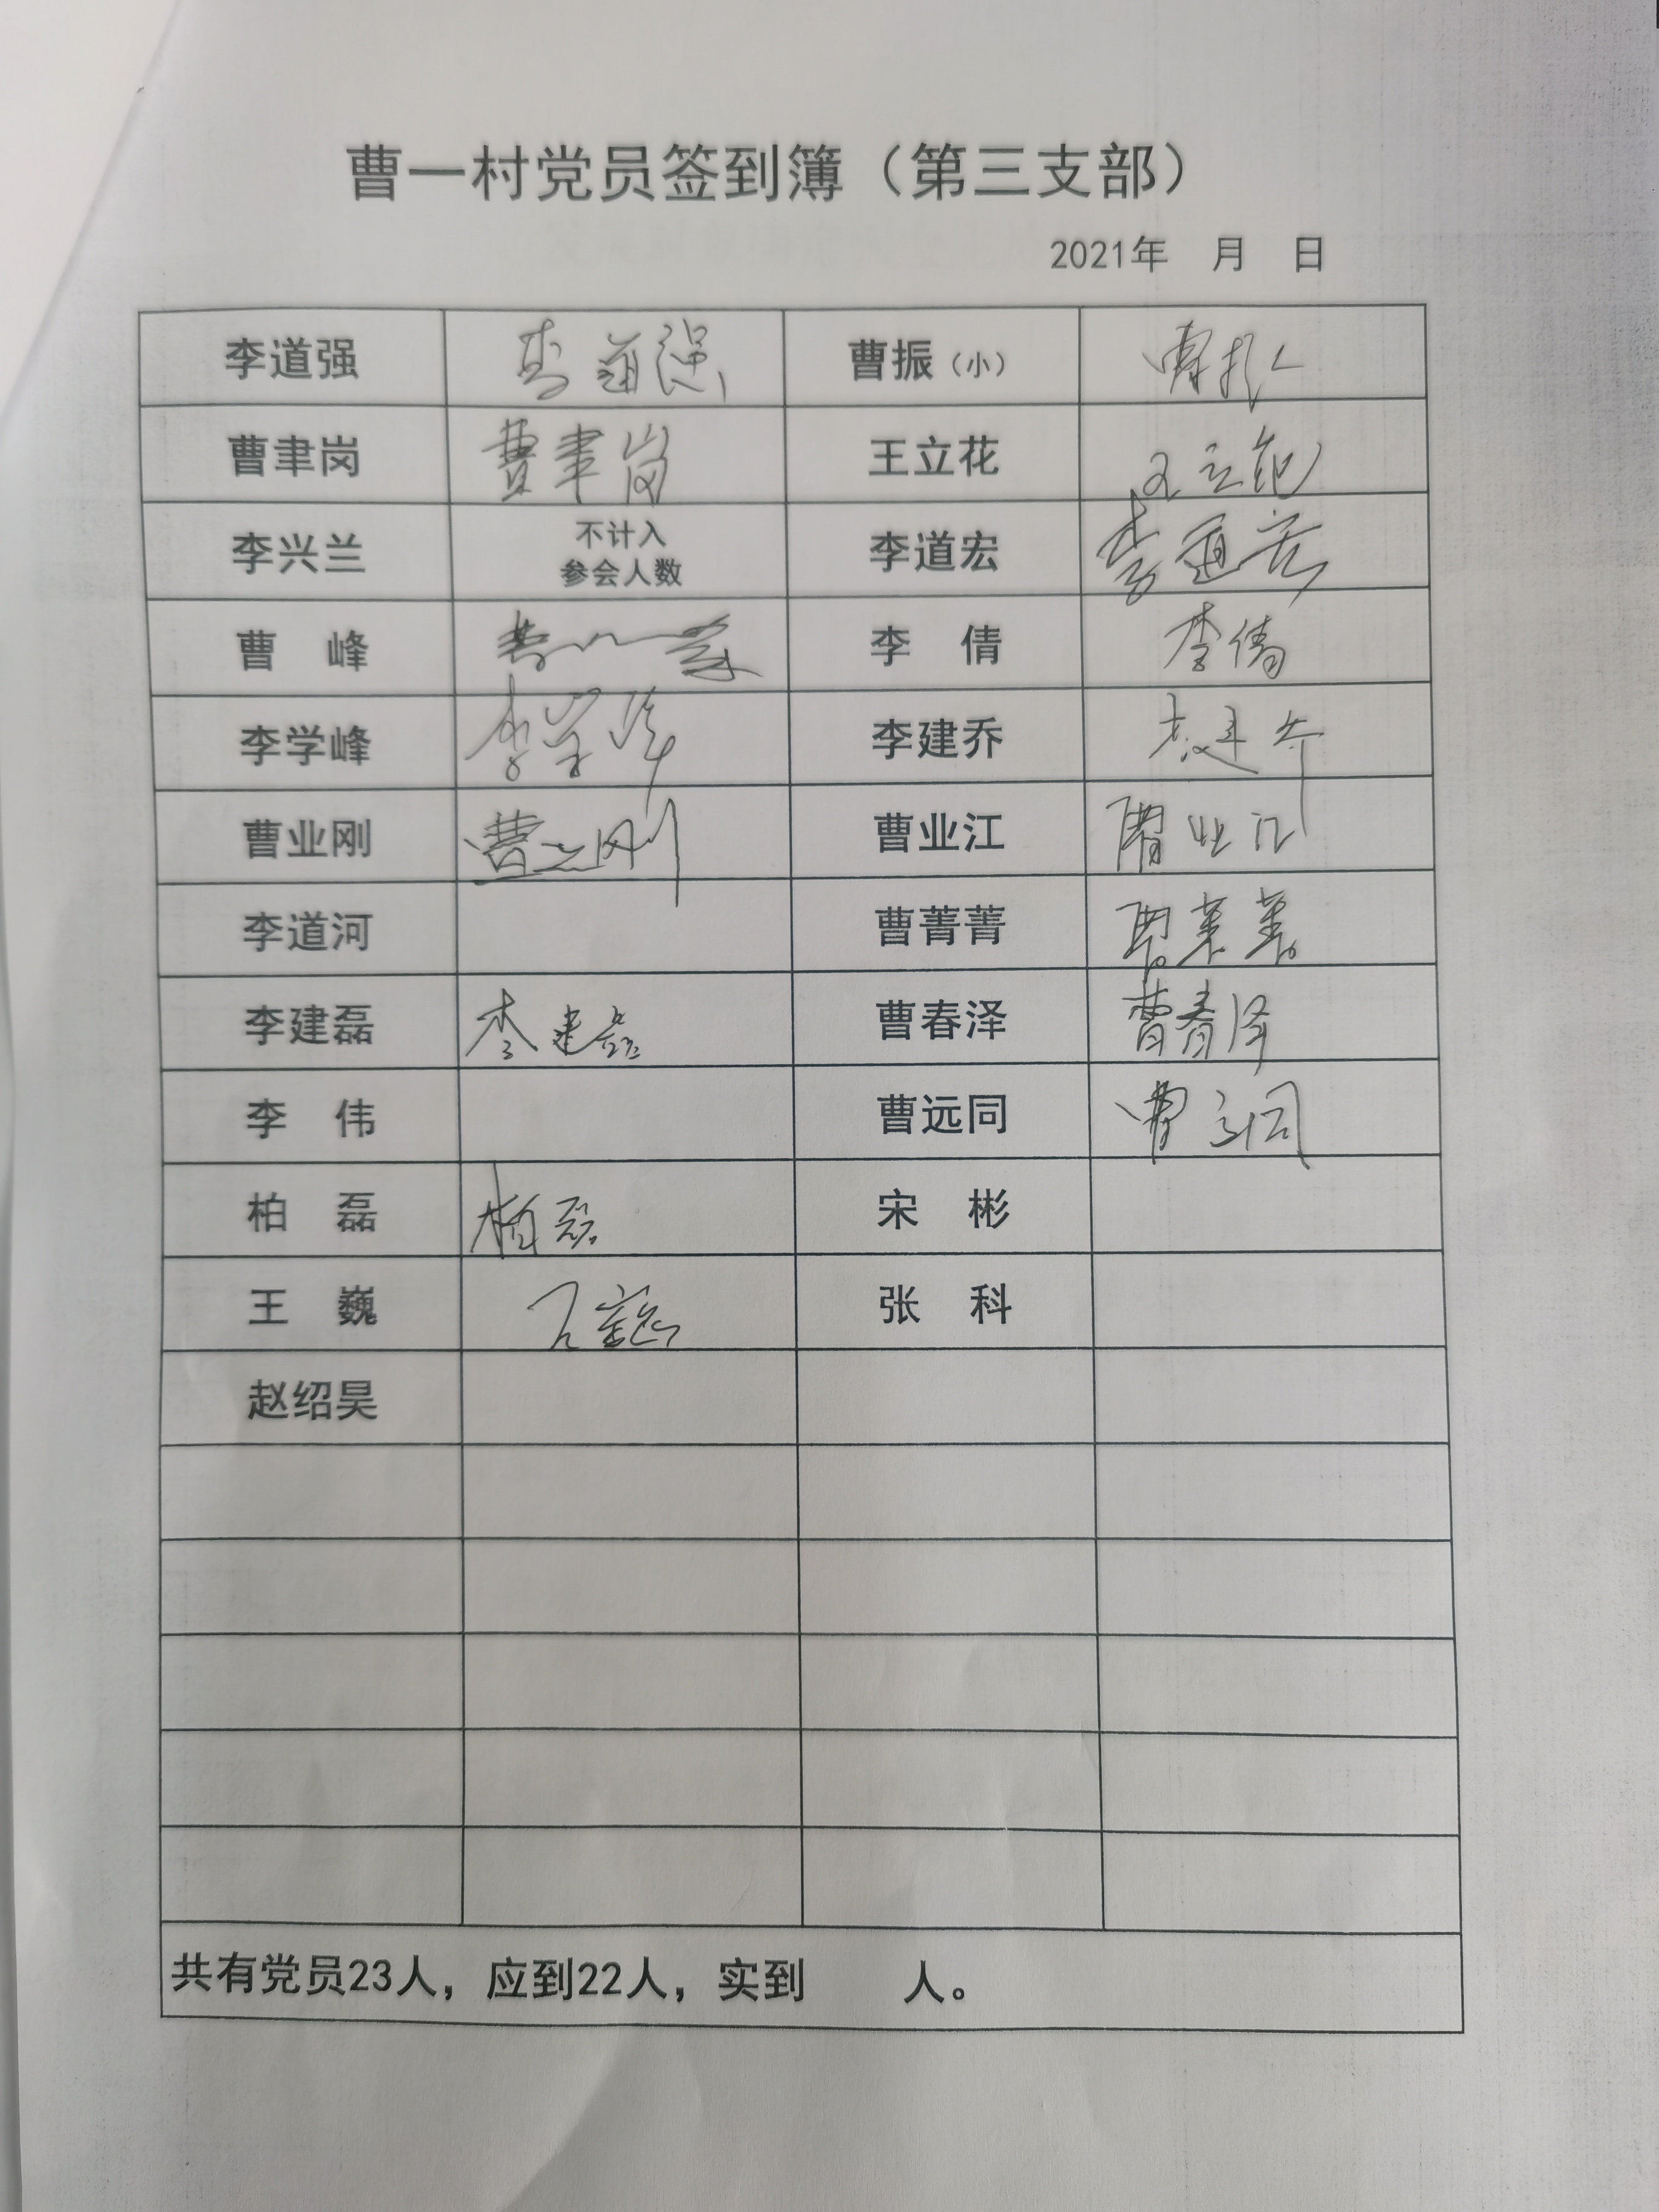 曹一村党员签到簿（第三支部）
2021年 月 日
李道强 李道强 曹振（小） 曹振
曹聿岗 曹聿岗 王立花 王立花
李兴兰 不计入 李道宏 李道宏
参会人数
曹 峰 曹峰 李 倩 李倩
李学峰 李学峰 李建乔 李建乔
曹业刚 曹业刚 曹业江 曹业江
李道河 曹菁菁 曹菁菁
李建磊 李建磊 曹春泽 曹春泽
李 伟 曹远同 曹远同
柏 磊 柏磊 宋 彬
王 巍 王巍 张 科
赵绍昊
共有党员23人，应到22人，实到 人。